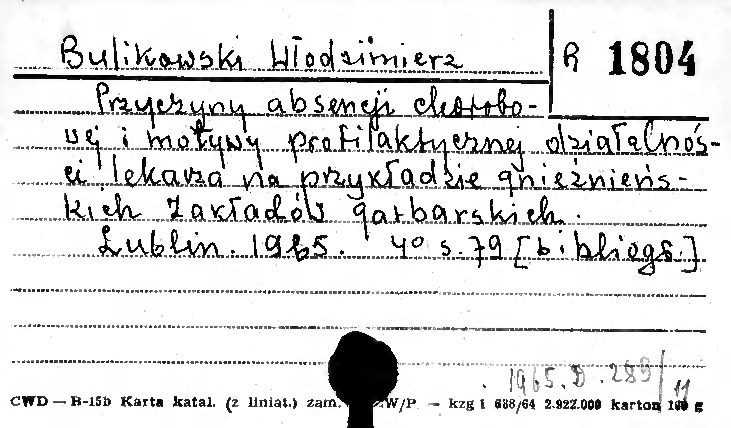 Bulikowski Włodzimierz R 1804
Przyczyny absencji chorobo-
wej i motywy profilaktycznej działalnoś-
ci lekarza na przykładzie gnieźnieńs-
kich Zakładów garbarskich.
Lublin. 1965. 4° s. 79 [bibliogr.]
1965. D. 289/11
CWD — B-15b Karta katal. (z liniat.) zam. ZW/P — kzg i 638/64 2.922.000 karton g